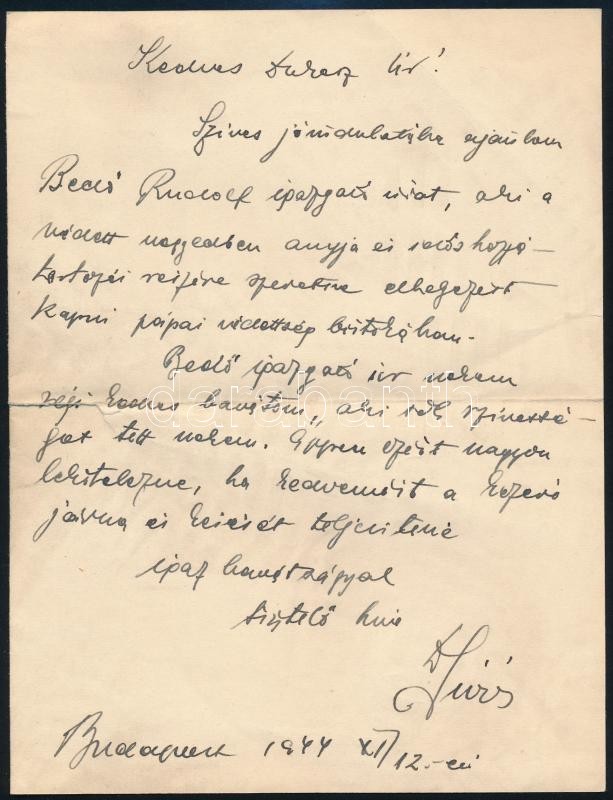 Kedves Durasz Úr!
Szives jóindulatába ajánlom
Bedő Rudolf igazgató urat, aki a
védett negyedben anyja és idős hozzá-
tartozói részére szeretne elhelyezést
kapni pápai védettség birtokában.
Bedő igazgató úr nekem
régi kedves barátom, aki sok szívessé-
get tett nekem. Éppen ezért nagyon
lekötelezne, ha kedvemért a kezére
járna és kérését teljesítené
igaz barátsággal
tisztelő híve
darabanth
Budapest 1944 XI/12.-én